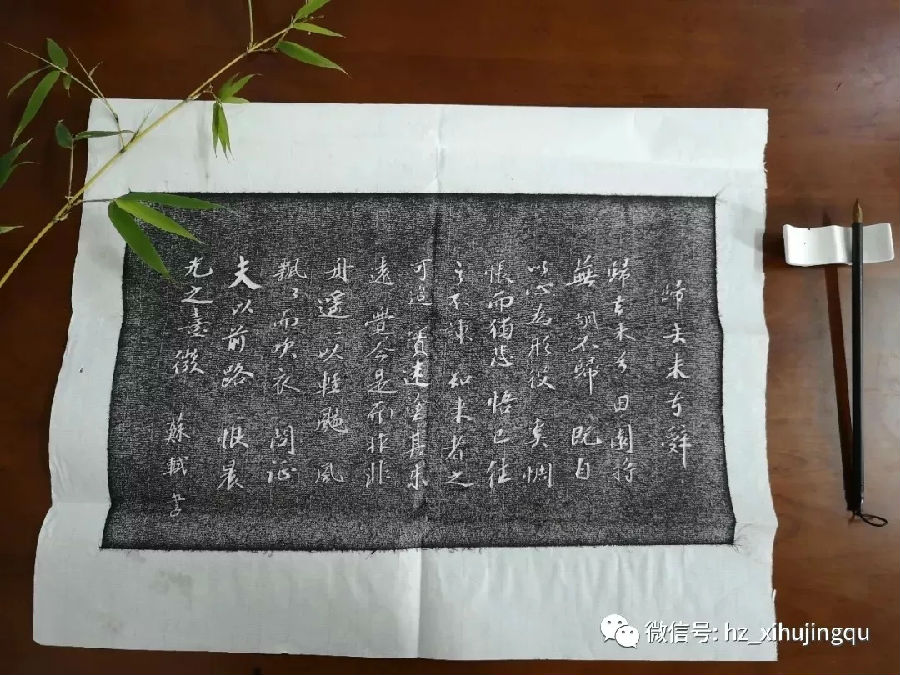 歸去来兮辞
歸去来兮田園将
蕪胡不歸既自
以心為形役奚惆
悵而獨悲悟已往
之不諫知来者之
可追實迷途其未
遠覺今是而昨非
舟遥以輕颺風
飄而吹衣問征
夫以前路恨晨
光之熹微
蘇軾
微信号: hz_xihujingqu